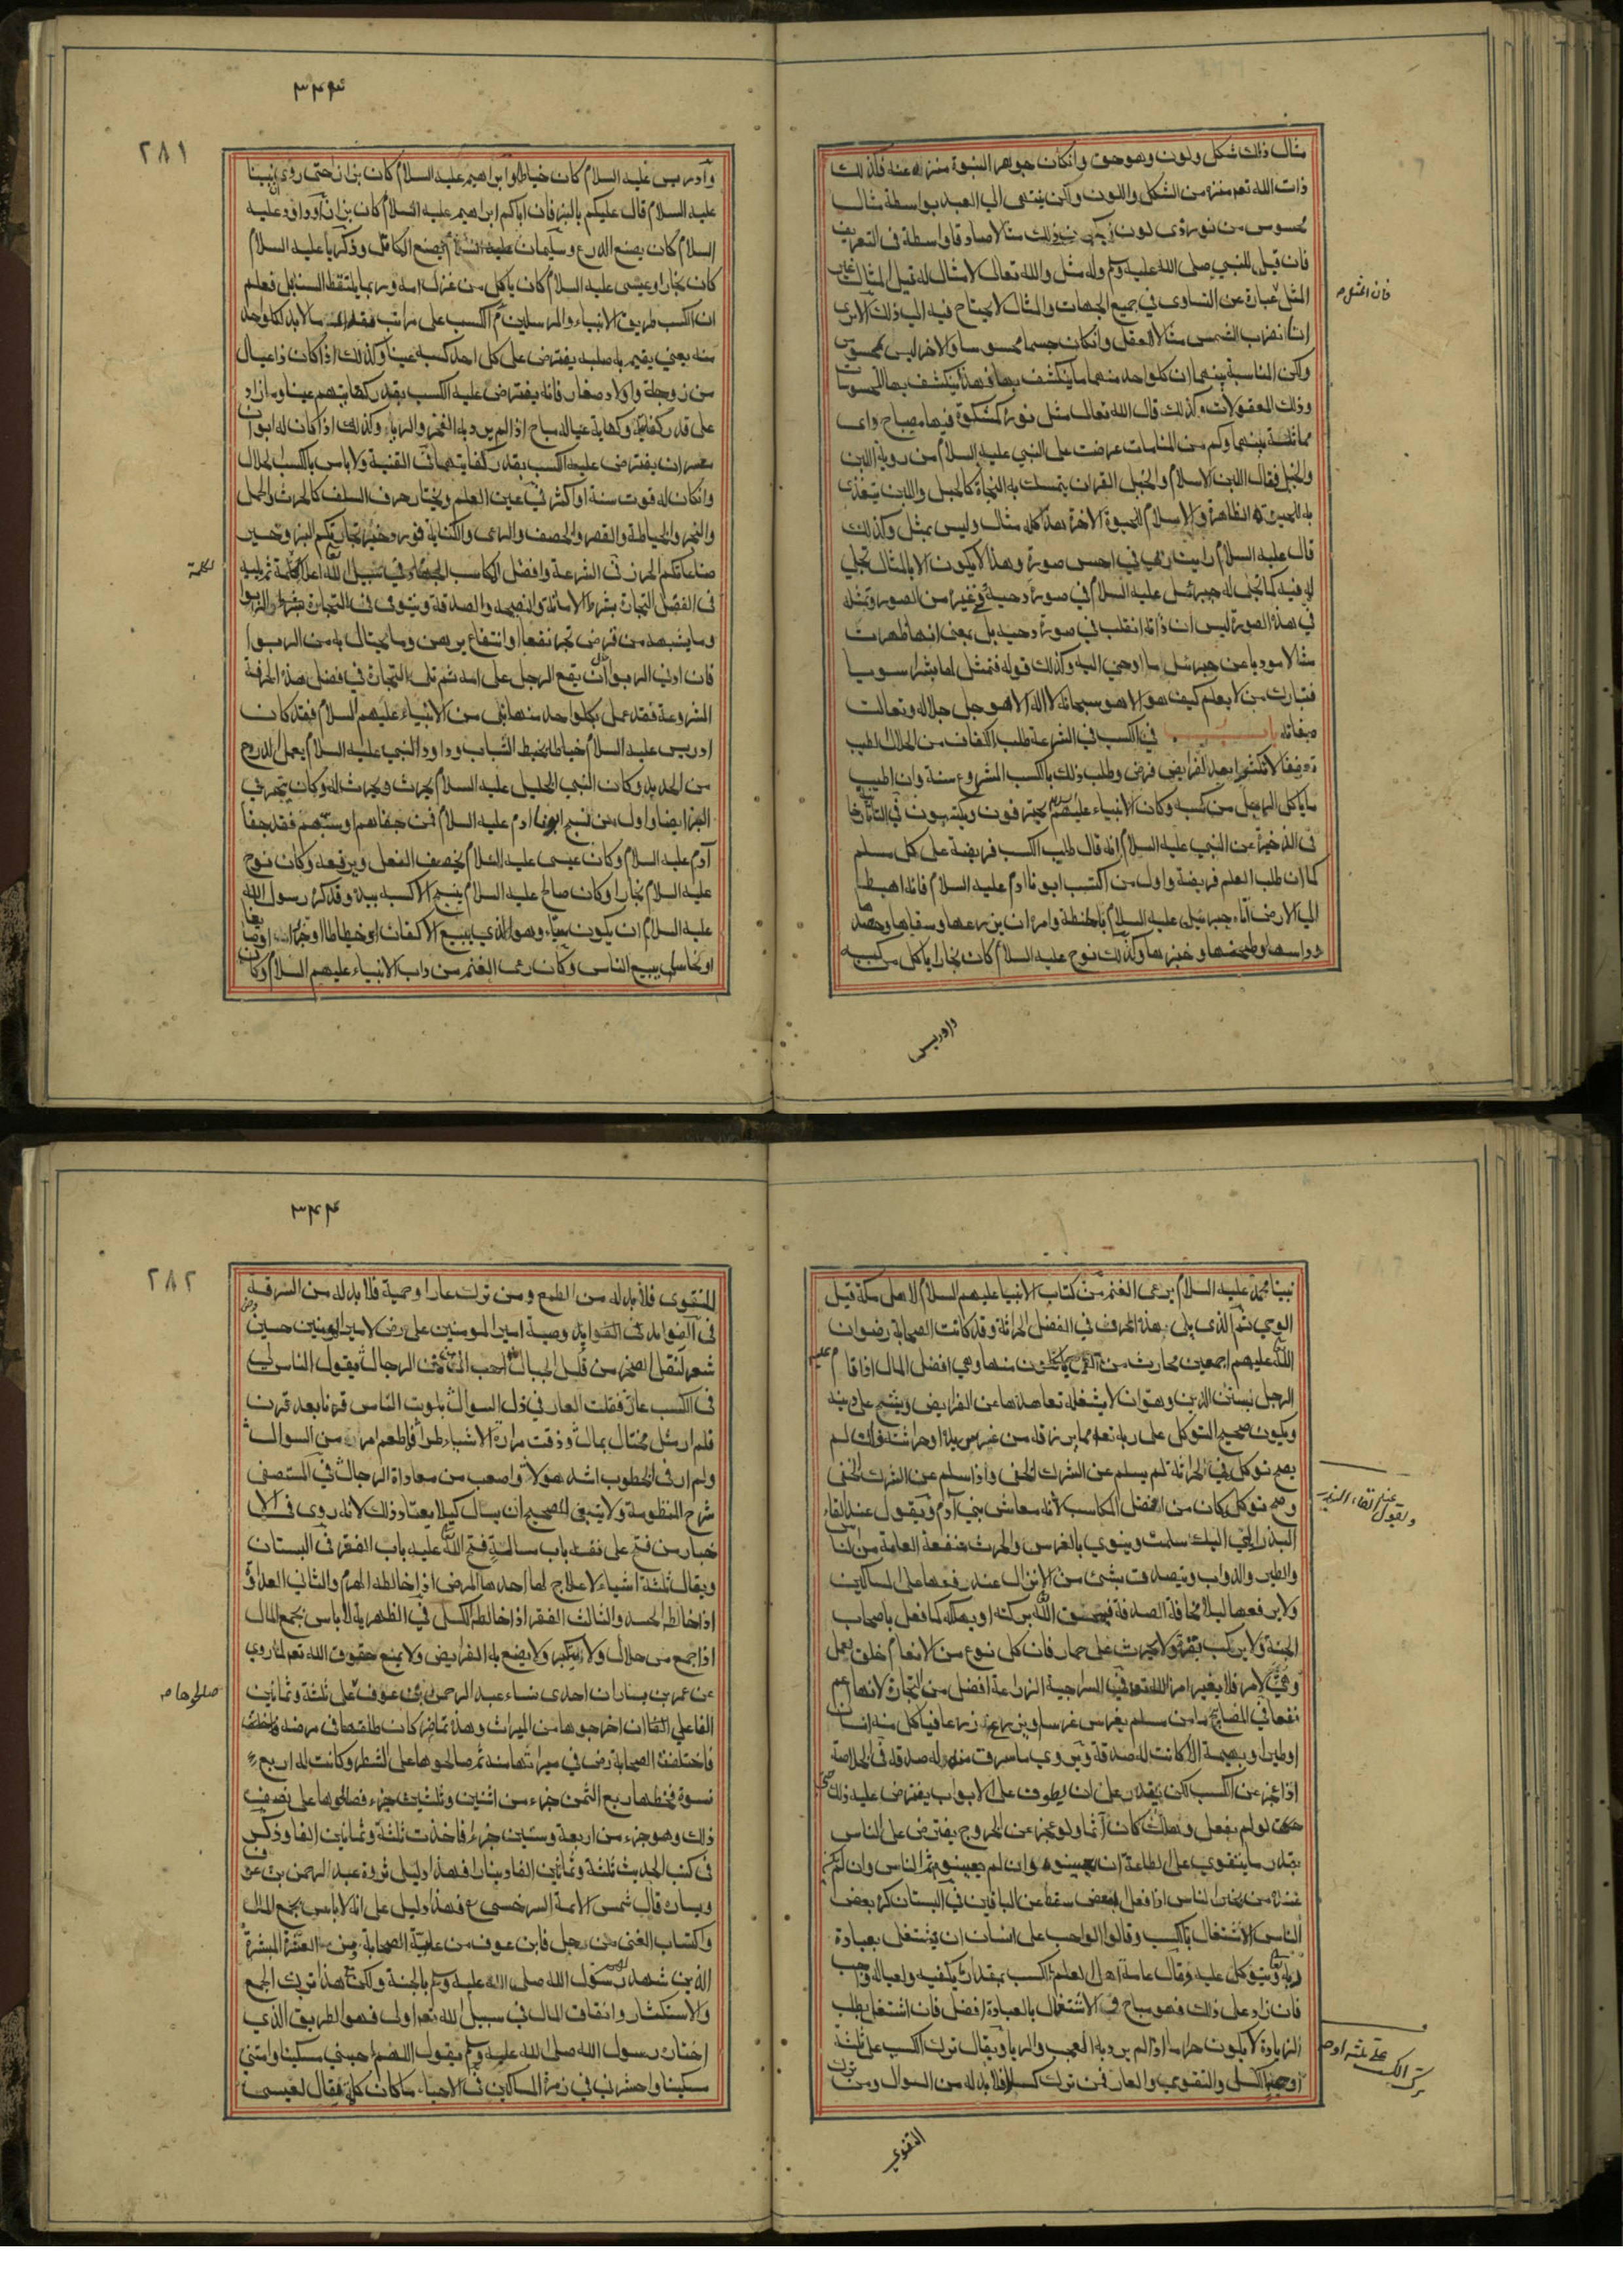 مثال ذلك شكل ولون وهو حق وانكان جواهر النبوة منزه عنه فكذلك
ذات الله تعم منزه من الشكل واللون ولكن ينتهي الي العبد بواسطة مثال
محسوس من نور وذي لون ذلك مثالا صادقا وواسطة في التعريف
فان قيل للنبي صلى الله عليه وسلم وله مثل والله تعالى لا مثال له قيل المثال
المثل عبارة عن التساوي في جميع الجهات والمثال لا يحتاج فيه الي ذلك الا تري
فان المثل م
انا نضرب الشمس مثالا للعقل وانكان جسما محسوسا والاخر ليس بمحسوس
ولكن المناسبة بينهما ان كل واحد منهما ينكشف بها فهذا ينكشف بها المحسوسات
وذلك المعقولات وكذلك قال الله تعالى مثل نوره كمشكوة فيها مصباح واي
مماثلة بينهما وكم من المنامات عرضت على النبي عليه السلام من روية اللبن
والحبل فقال اللبن الاسلام والحبل القران يتمسك به النجاة كالحبل واللبن يتغذي
به للحيوة الظاهرة والاسلام للحيوة الاخرة هذا كله مثال وليس بمثل وكذلك
قال عليه السلام رايت ربي في احسن صورة وهذا لا يكون الا بالمثال تجلي
له فيه كما تجلى له جبرائيل عليه السلام في صورة دحية وفي غيره من الصور وتمثله
في هذه الصورة ليس ان ذاته انقلب في صورة دحية بل بمعنى انها ظهرت
مثالا موديا عن جبرئيل ما اوحي اليه وكذلك قوله فتمثل لها بشرا سويا
فتبارك من لا يعلم كيف هو الا هو سبحانه لا اله الا هو جل جلاله وتعالت
صفاته باب في الكسب في الشرعة طلب الكفاف من الحلال الطيب
تعففا لا تكثرا بعد الفرايض فرض وطلب ذلك بالكسب المشروع سنة وان اطيب
ما ياكل الرجل من كسبه وكان الانبياء عليهم السلام يحترفون ويكتسبون في التاتارخا
في الذخيرة عن النبي عليه السلام انه قال طلب الكسب فريضة على كل مسلم
كما ان طلب العلم فريضة واول من اكتسب ابونا ادم عليه السلام فانه اهبط
الي الارض اتاه جبرئيل عليه السلام بالحنطة وامره ان يزرعها وسقاها وحصدها
وداسها وطحنها وخبزها وكذلك نوح عليه السلام كان نجارا ياكل من كسبه
وادريس
٣٤٣
٢٨١
وادريس عليه السلام كان خياطا وابراهيم عليه السلام كان بزازا حتى روي ان نبينا
عليه السلام قال عليكم بالبز فان اباكم ابراهيم عليه السلام كان بزازا وداود عليه
السلام كان يصنع الدرع وسليمان عليه السلام يصنع المكاتل وزكريا عليه السلام
كان نجارا وعيسى عليه السلام كان ياكل من غزل امه وربما يلتقط السنابل فعلم
ان الكسب طريق الانبياء والمرسلين ثم الكسب على مراتب فقدر ما لا بد لكل واحد
منه يعني يقيم به صلبه يفترض على كل احد كسبه عينا وكذلك اذا كان ذا عيال
من زوجة واولاد صغار فانه يفترض عليه الكسب بقدر كفايتهم عينا وما زاد
على قدر كفايته وكفاية عياله مباح اذا لم يرد به الفخر والرياء وكذلك اذا كان له ابوان
معسران يفترض عليه الكسب بقدر كفايتهما في القنية ولا باس بالكسب الحلال
وانكان له قوت سنة او اكثر في عين العلم ويختار حرف السلف كالحرث والحمل
والتجر والخياطة والقصر والخصف والرعي والكتابة فورد خير تجارتكم البز وخير
صناعاتكم الخرز في الشرعة وافضل المكاسب الجهاد في سبيل الله اعلاء كلمة ثم يليه
لكلمة
في الفضل التجارة بشرط الامانة والنصيحة والصدقة ويتوقى في التجارة شرط والربوا
وما يشبهه من قرض تجر نفعا وانتفاع برهن وما يحتال به من الربوا
فان ادنى الربوا ان يقع الرجل على امه ثم تلي التجارة في فضل هذه الحرفة
المشروعة فقد عمل بكل واحد منها نبي من الانبياء عليهم السلام فقد كان
ادريس عليه السلام خياطا يخيط الثياب وداود النبي عليه السلام يعمل الدروع
من الحديد وكان النبي الخليل عليه السلام يحرث ويحرث له وكان يتجر في
البز ايضا واول من نسج ابونا ادم عليه السلام فمن جفاهم او سبهم فقد جفا
آدم عليه السلام وكان عيسى عليه السلام يخصف النعل ويرقعه وكان نوح
عليه السلام نجارا وكان صالح عليه السلام ينسج الاكسية بيده وقد كره رسول الله
عليه السلام ان يكون سياء وهو الذي يبيع الاكفان او خياطا او جزارا او قصابا
او نخاسا يبيع الناس وكان رعى الغنم من داب الانبياء عليهم السلام وكان
نبينا محمد عليه السلام يرعى الغنم من كتاب الانبيا عليهم السلام لاهل مكة قبل
الوحي ثم الذي يلى هذه الحرف في الفضل الحراثة وقد كانت الصحابة رضوان
الله عليهم اجمعين محارث من ياكلون منها وهي افضل المال اذا قام عليه
الرجل بسنن الدين وهو ان لا يشغله تعاهدها عن الفرايض ويشح على دينه
ويكون صحيح التوكل على ربه تعم مما يرزقه من غرس يده او حراثته فان لم
يصح توكله في الحراثة لم يسلم عن الشرك الخفي واذا سلم عن الشرك الخفي
وصح توكله كان من افضل المكاسب لانه معاش بني آدم ويقول عند القاء
ويقول عند القاء البذر
البذر الهي اليك سلمت وينوي بالغرس والحرث منفعة العامة من الناس
والطير والدواب ويتصدق بشئ من الانزال عند رفعها على المساكين
ولا يرفعها ليلا مخافة الصدقة فيمحق الله بركته او يهلكه كما فعل باصحاب
الجنة ولا يركب بقرة ولا يحرث على حمار فان كل نوع من الانعام خلق لعمل
وهئ لامر فلا يغير امر الله تعم في السراجية الزراعة افضل من التجارة لانها اعم
نفعا في المصابيح ما من مسلم يغرس غرسا او يزرع زرعا فياكل منه انسان
او طير او بهيمة الا كانت له صدقة ويروي ما سرق منه له صدقة في الخلاصة
اذا عجز عن الكسب لكن يقدر على ان يطوف على الابواب يفترض عليه ذلك حتى
لو لم يفعل وهلك كان آثما ولو عجز عن الخروج يفترض على الناس
بقدر ما يتقوي على الطاعة ان يعينوه وان لم يعينوه ثم الناس وان
الناس اذا فعل البعض سقط عن الباقين في البستان كره بعض
الناس الاشتغال بالكسب وقالوا الواجب على انسان ان يشتغل بعبادة
ربه ويتوكل عليه وقال عامة اهل العلم الكسب بمقدار يكفيه ولعياله واجب
فان زاد على ذلك فهو مباح في الاشتغال بالعبادة افضل فان اشتغل بطلب
الزيادة لا يكون حراما اذا لم يرد به العجب والريا ويقال ترك الكسب على ثلثة
ترك الكسب على ثلثة اوجه
اوجه الكسل والتقوي والعار فمن ترك كسلا فلا بد له من السوال ومن ترك
التقوي
٣٤٤
٢٨٢
للتقوى فلا بد له من الطمع ومن ترك عارا وحمية فلا بد له من السرقة
في الفوايد في الفوايد وصية امير المومنين على رض لامير المومنين حسين رض
شعر لنقل الصخر من قلل الجبال احب الي من منن الرجال يقول الناس لي
في الكسب عار فقلت العار في ذل السوال بلوت الناس قرنا بعد قرن
فلم ار مثل مختال بمال وذقت مرارة الاشياء طرا فما طعم امر من السوال
ولم ار في الخطوب اشد هولا واصعب من معاداة الرجال في المستصفى
شرح المنظومة ولا ينبغي للصحيح ان يسال كيلا يعتاد ذلك لانه روي في الا
خبار من فتح على نفسه باب مسالة فتح الله عليه باب الفقر في البستان
ويقال ثلثة اشياء لا علاج لها احدها المرض اذا خالطه الهرم والثاني العداوة
اذا خالطه الحسد والثالث الفقر اذا خالطه الكسل في الظهيرية لا باس بجمع المال
اذا جمع من حلال ولا يتكبر ولا يضع به الفرايض ولا يمنع حقوق الله تعم لما روي
عن عمر بن يسار ان احدى نساء عبد الرحمن بن عوف على ثلثة وثمانين
صالحوها م
الفا على ان اخرجوها من الميراث وهذه تماضر كان طلقها في مرضه
فاختلفت الصحابة رض في ميراثها منه ثم صالحوها على الشطر وكانت له اربع
نسوة فحظها ربع الثمن جزء من اثنين وثلثين جزء فصالحوها على نصف
ذلك وهو جزء من اربعة وستين جزءا فاخذت ثلثة وثمانين الفا وذكر
في كتب الحديث ثلثة وثمانين الفا دينارا فهذا دليل ثروة عبد الرحمن بن عوف
ويساره قال شمس الائمة السرخسي ع فهذا دليل على انه لا باس بجمع المال
واكتساب الغنى من رجل فابن عوف من علية الصحابة ومن العشرة المبشرة
الذين شهد لهم رسول الله صلى الله عليه وسلم بالجنة ولكن مع هذا ترك الجمع
والاستكثار وانفاق المال في سبيل الله تعم اولى فهو الطريق الذي
اختار رسول الله صلى الله عليه وسلم بقوله اللهم احيني مسكينا وامتني
مسكينا واحشرني في زمرة المساكين في الاحياء ما كان فقال لعيسى